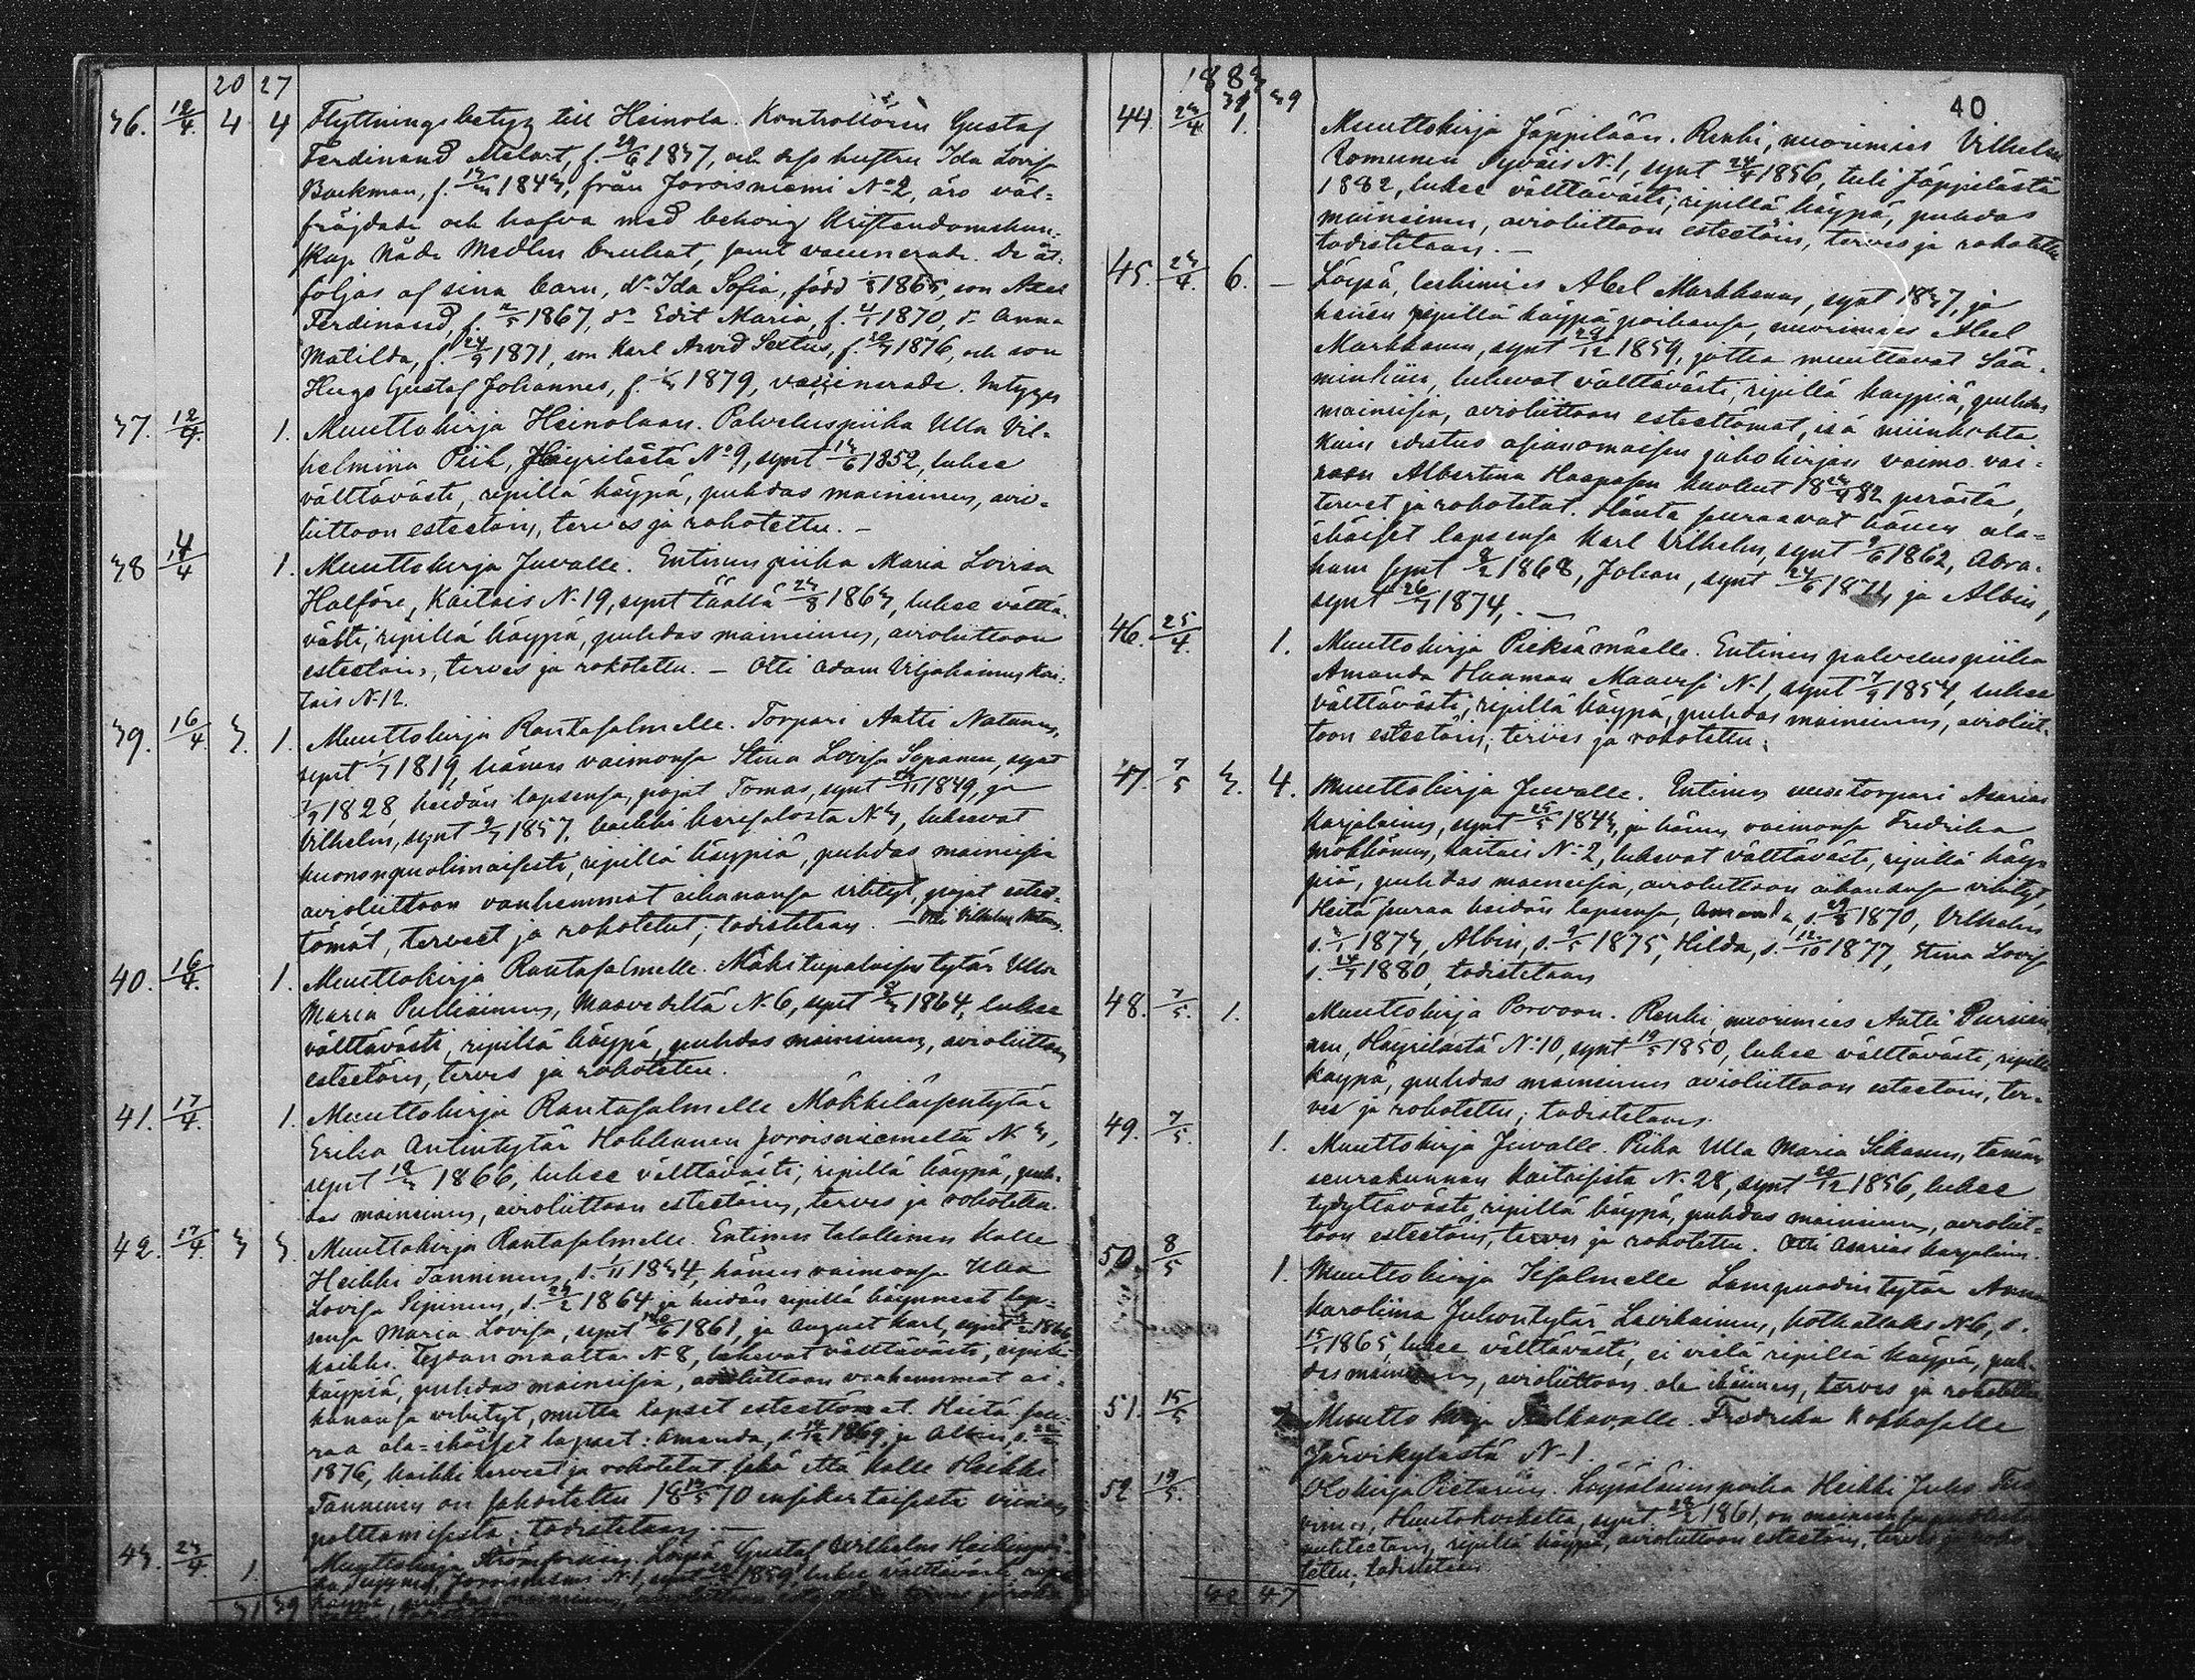 20 27
36. 12/4 4 4 Flyttningsbetyg till Heinola. Kontrollören Gustaf
Ferdinand Melart, f. 1837, och dess hustru Ida Lovisa
Backman, f. 1843, från Joroisniemi No 2, äro väl-
frejdade och hafva med behörig Kristendomskun-
skap Nåde Medlen brukat, samt vaccinerade. De åt-
följas af sina barn, dr Ida Sofia, född 1865, son Axel
Ferdinand, f. 2/5 1867, dr Edit Maria, f. 1870, dr Anna
Matilda, f. 24/9 1871, son Karl Arvid Sextus, f. 1876, och son
Hugo Gustaf Johannes, f. 1879, vaccinerade. Intygas
37. 12/4 1. Muuttokirja Heinolaan. Palveluspiika Ulla Vil-
helmina Piik, Häyrilästä No 9, synt 13/6 1852, lukee
välttävästi, ripillä käypä, puhdas maineinen, avio-
liittoon esteetöin, terves ja rokotettu. —
38 14/4 1. Muuttokirja Juvalle. Entinen piika Maria Lovisa
Halföre, Kaitais N. 19, synt täällä 23/8 1863, lukee vältta-
västi, ripillä käypä, puhdas maineinen, avioliittoon
esteetöin, terves ja rokotettu. — Otti Adam Viljakainen Kai-
tais N. 12.
39. 16/4 3. 1. Muuttokirja Rantasalmelle. Torpari Antti Natunen,
synt 1819, hänen vaimonsa Stina Lovisa Sopanen, synt
1828, heidän lapsensa, pojat Tomas, synt 1849, ja
Vilhelm, synt 1857, kaikki Kerisalosta N. 3, lukeevat
huononpuolimaisesti, ripillä käypiä, puhdas maineisia
avioliittoon vanhemmat aikanansa vihityt, pojat esteet-
tömät, terveet ja rokotetut; todistetaan. — Otti Vilhelm Natunen.
40. 16/4. 1. Muuttokirja Rantasalmelle. Mäkitupalaisen tytär Ulla
Maria Pulliainen, Maavedeltä N. 6, synt 1864, lukee
välttävästi, ripillä käypä, puhdas maineinen, avioliittoon
esteetöin, terves ja rokotettu.
41. 17/4. 1. Muuttokirja Rantasalmelle Mökkiläisentytär
Erika Antintytär Hokkanen Joroisniemeltä N. 3,
synt 1866, lukee välttävästi, ripillä käypä, puh-
das maineinen, avioliittoon esteetöin, terves ja rokotettu.
42. 17/4. 3 3. Muuttokirja Rantasalmelle. Entinen talollinen Kalle
Heikki Tanninen, s. 1/11 1834, hänen vaimonsa Ulla
Lovisa Pipinen, s. 1864, ja heidän ripillä käynneet lap-
sensa Maria Lovisa, synt 1861, ja August Karl, synt 1866,
kaikki N. 8, lukevat välttävästi, ripillä
käypiä, puhdas maineisia, avioliittoon vanhemmat ai-
kanansa vihityt, mutta lapset esteettömät. Heitä seu-
raa ala-ikäiset lapset: Amanda, s. 14/12 1869, ja Albin, s.
1876, kaikki terveet ja rokotetut sekä että Kalle Heikki
Tanninen on sakoitettu 1870 ensikertaisesta viinan
polttamisesta; todistetaan. —
43. 23/4. 1. Muuttokirja Strömforsiin. Loisi Gustaf Vilhelm
Joroisniemi N. 1, synt 1859, lukee välttävästi, ripillä
käypä, puhdas maineinen, avioliittoon
31 39
1883
31 39
40
44. 23/4. 1. Muuttokirja Jäppilään. Renki, nuorimies Vilhelm
Romunen Syväis N. 1, synt 24/4 1856, tuli Jäppilästä
1882, lukee välttävästi, ripillä käypä, puhdas
maineinen, avioliittoon esteetöin, terves ja rokotettu
todistetaan. —
45. 23/4. 6. — Loisi, leskimies Abel Markkanen, synt 1837, ja
hänen ripillä käypä poikansa, nuorimies Abel
Markkanen, synt 29/12 1859, jotka muuttavat Sää-
minkiin, lukevat välttävästi, ripillä käypiä, puhdas
maineisia, avioliittoon esteettömät, isä niinkohta
kuin edistus asianomaisen jakokirjan vaimo vai-
naan Albertina Haapasen kuollut 1882 perästä,
terveet ja rokotetut. Häntä seuraavat hänen ala-
ikäiset lapsensa Karl Vilhelm, synt 9/6 1862, Abra-
ham synt 8/2 1868, Johan, synt 24/6 1871, ja Albin,
synt 1874, —
46. 25/4. 1. Muuttokirja Pieksämäelle. Entinen palveluspiika
Amanda Haaman Maavesi N. 1, synt 7/9 1854, lukee
välttävästi, ripillä käypä, puhdas maineinen, avioliit-
toon esteetöin, terves ja rokotettu.
47. 7/5 3. 4. Muuttokirja Juvalle. Entinen torpari Asarias
Karjalainen, synt 25/5 1843, ja hänen vaimonsa Fredrika
Mökkönen, Kaitais No 2, lukevat välttävästi, ripillä käy-
piä, puhdas maineisia, avioliittoon aikanansa vihityt,
Heitä seuraa heidän lapsensa, Amanda, s. 1870, Vilhelm
s. 1873, Albin, s. 9/5 1875, Hilda, s. 12/10 1877, Stina Lovisa
s. 1880, todistetaan
48. 7/5. 1. Muuttokirja Porvoon. Renki, nuorimies Antti Pursiai-
nen, Häyrilästä No 10, synt 1850, lukee välttävästi, ripillä
käypä, puhdas maineinen avioliittoon esteetöin, ter-
ves ja rokotettu; todistetaan.
49. 7/5. 1. Muuttokirja Juvalle. Piika Ulla Maria Sikanen, tämän
seurakunnan Kaitaisista N. 28, synt 20/12 1856, lukee
tydyttävästi, ripillä käypä, puhdas maineinen, avioliit-
toon esteetöin, terves ja rokotettu. Otti Asarias Karjalainen.
50. 8/5 1. Muuttokirja Iisalmelle Lampuodintytär Anna
Karoliina Juhontytär Lavikainen, Kotkatlaks N. 6, s.
1865, lukee välttävästi, ei vielä ripillä käypä, puh-
das maineinen, avioliittoon ala ikäinen, terves ja rokotettu
51. 15/5 Muuttokirja Fredrika Kokkoselle
Järvikylästä N. 1.
52 19/5. Olokirja Pietariin. Loisiläisenpoika Heikki Juho
Huutokoskelta, synt 1861, on
ripillä käypä, avioliittoon esteetöin, terves ja roko-
tettu; todistetaan.
42 47